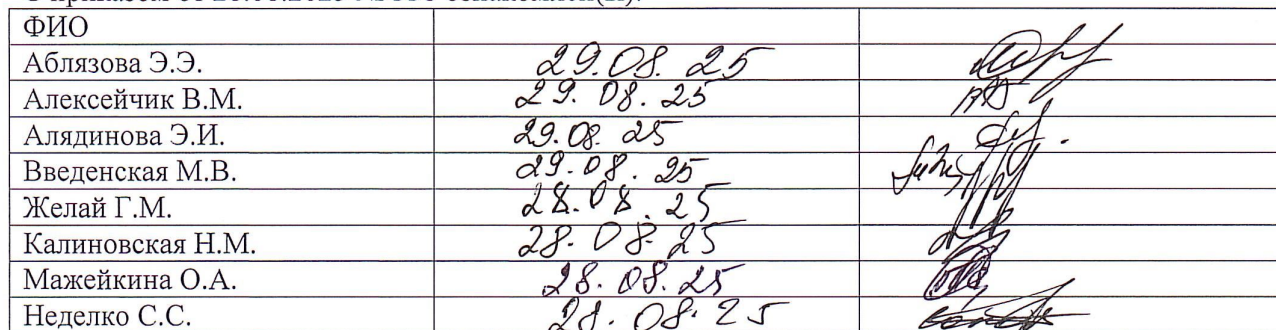 ФИО
Аблязова Э.Э. 29.08.25
Алексейчик В.М. 29.08.25
Алядинова Э.И. 29.08.25
Введенская М.В. 29.08.25
Желай Г.М. 28.08.25
Калиновская Н.М. 28.08.25
Мажейкина О.А. 28.08.25
Неделко С.С. 28.08.25